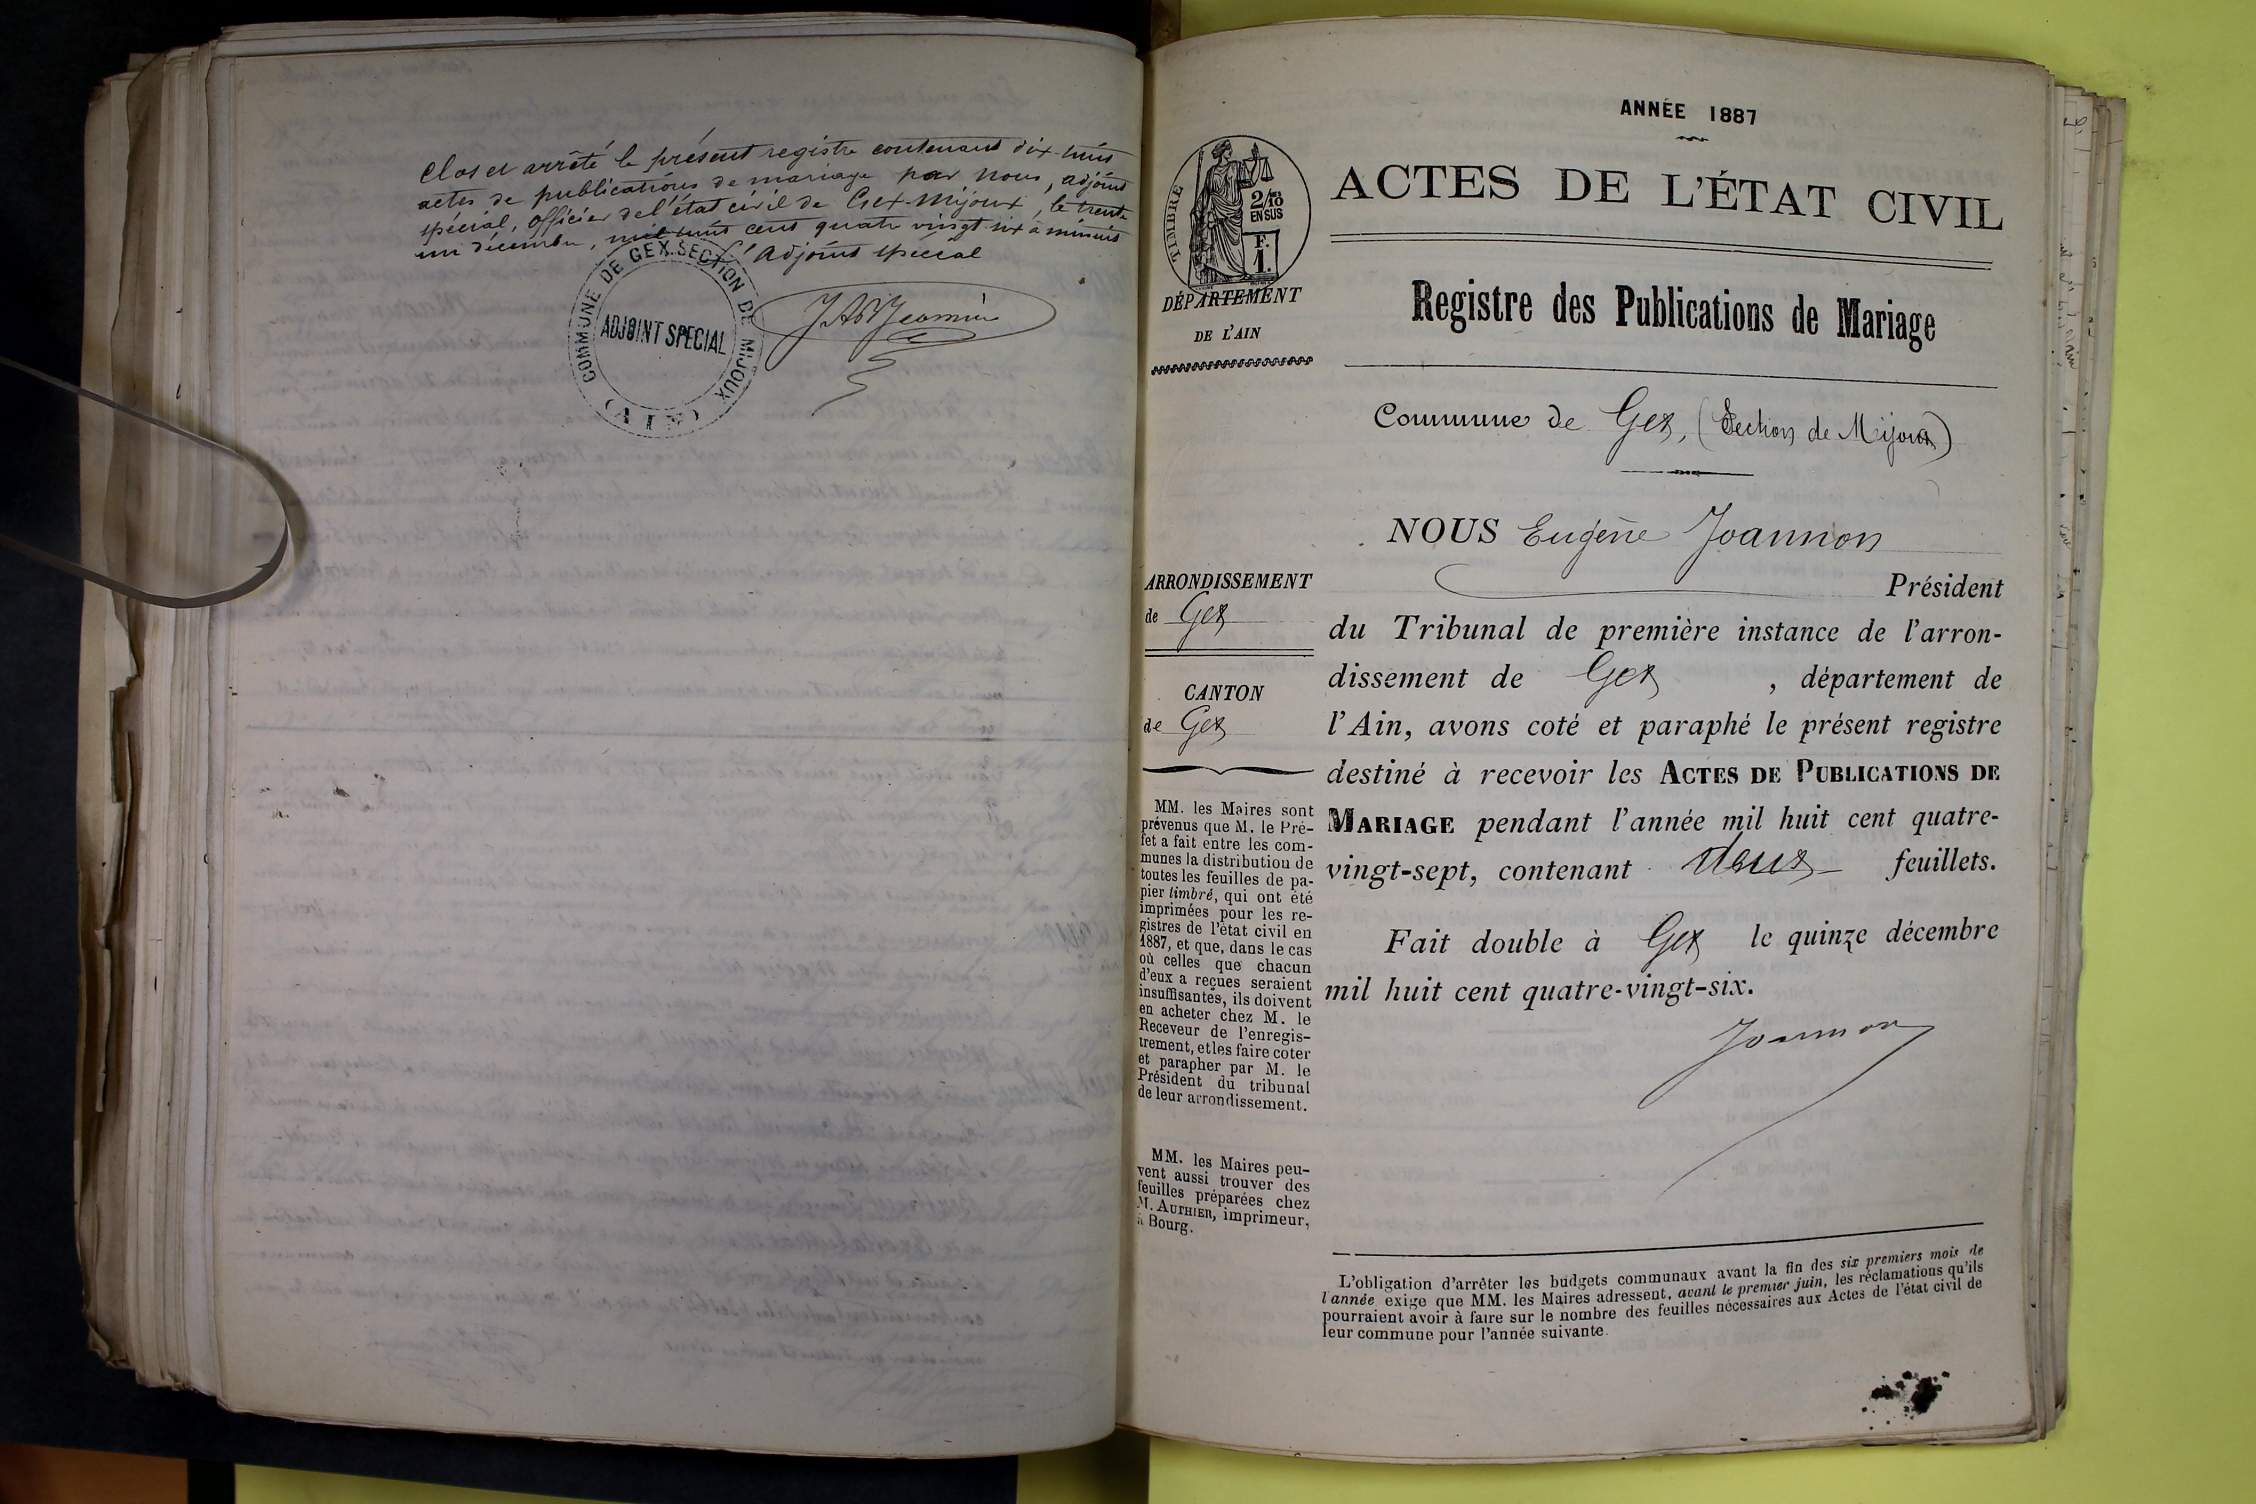 Clos et arrêté le présent registre contenant dix-huit
actes de publications de mariage par nous, adjoint
spécial, officier de l'état civil de Gex-Mijoux, le trente
un décembre, mil huit cent quatre vingt six à minuit
l'adjoint spécial
COMMUNE DE GEX. SECTION DE MIJOUX
ADJOINT SPÉCIAL
(AIN)
ANNÉE 1887
TIMBRE
2/10
EN SUS
F.
1.
DÉPARTEMENT
DE L'AIN
ACTES DE L'ÉTAT CIVIL
Registre des Publications de Mariage
Commune de Gex, (Section de Mijoux)
ARRONDISSEMENT
de Gex
CANTON
de Gex
MM. les Maires sont
prévenus que M. le Pré-
fet a fait entre les com-
munes la distribution de
toutes les feuilles de pa-
pier timbré, qui ont été
imprimées pour les re-
gistres de l'état civil en
1887, et que, dans le cas
où celles que chacun
d'eux a reçues seraient
insuffisantes, ils doivent
en acheter chez M. le
Receveur de l'enregis-
trement, et les faire coter
et parapher par M. le
Président du tribunal
de leur arrondissement.
MM. les Maires peu-
vent aussi trouver des
feuilles préparées chez
M. AUTHIER, imprimeur,
à Bourg.
NOUS Eugène Joannon
Président
du Tribunal de première instance de l'arron-
dissement de Gex , département de
l'Ain, avons coté et paraphé le présent registre
destiné à recevoir les ACTES DE PUBLICATIONS DE
MARIAGE pendant l'année mil huit cent quatre-
vingt-sept, contenant deux feuillets.
Fait double à Gex le quinze décembre
mil huit cent quatre-vingt-six.
Joannon
L'obligation d'arrêter les budgets communaux avant la fin des six premiers mois de
l'année exige que MM. les Maires adressent, avant le premier juin, les réclamations qu'ils
pourraient avoir à faire sur le nombre des feuilles nécessaires aux Actes de l'état civil de
leur commune pour l'année suivante.